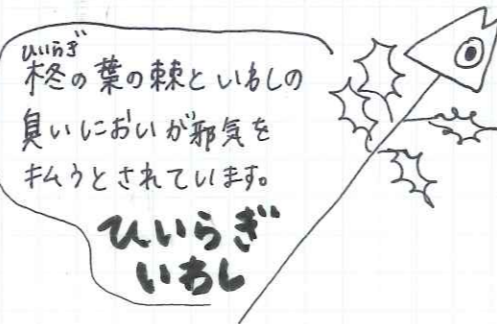 ひいらぎ
柊の葉の棘といわしの
臭いにおいが邪気を
払うとされています。
ひいらぎ
いわし